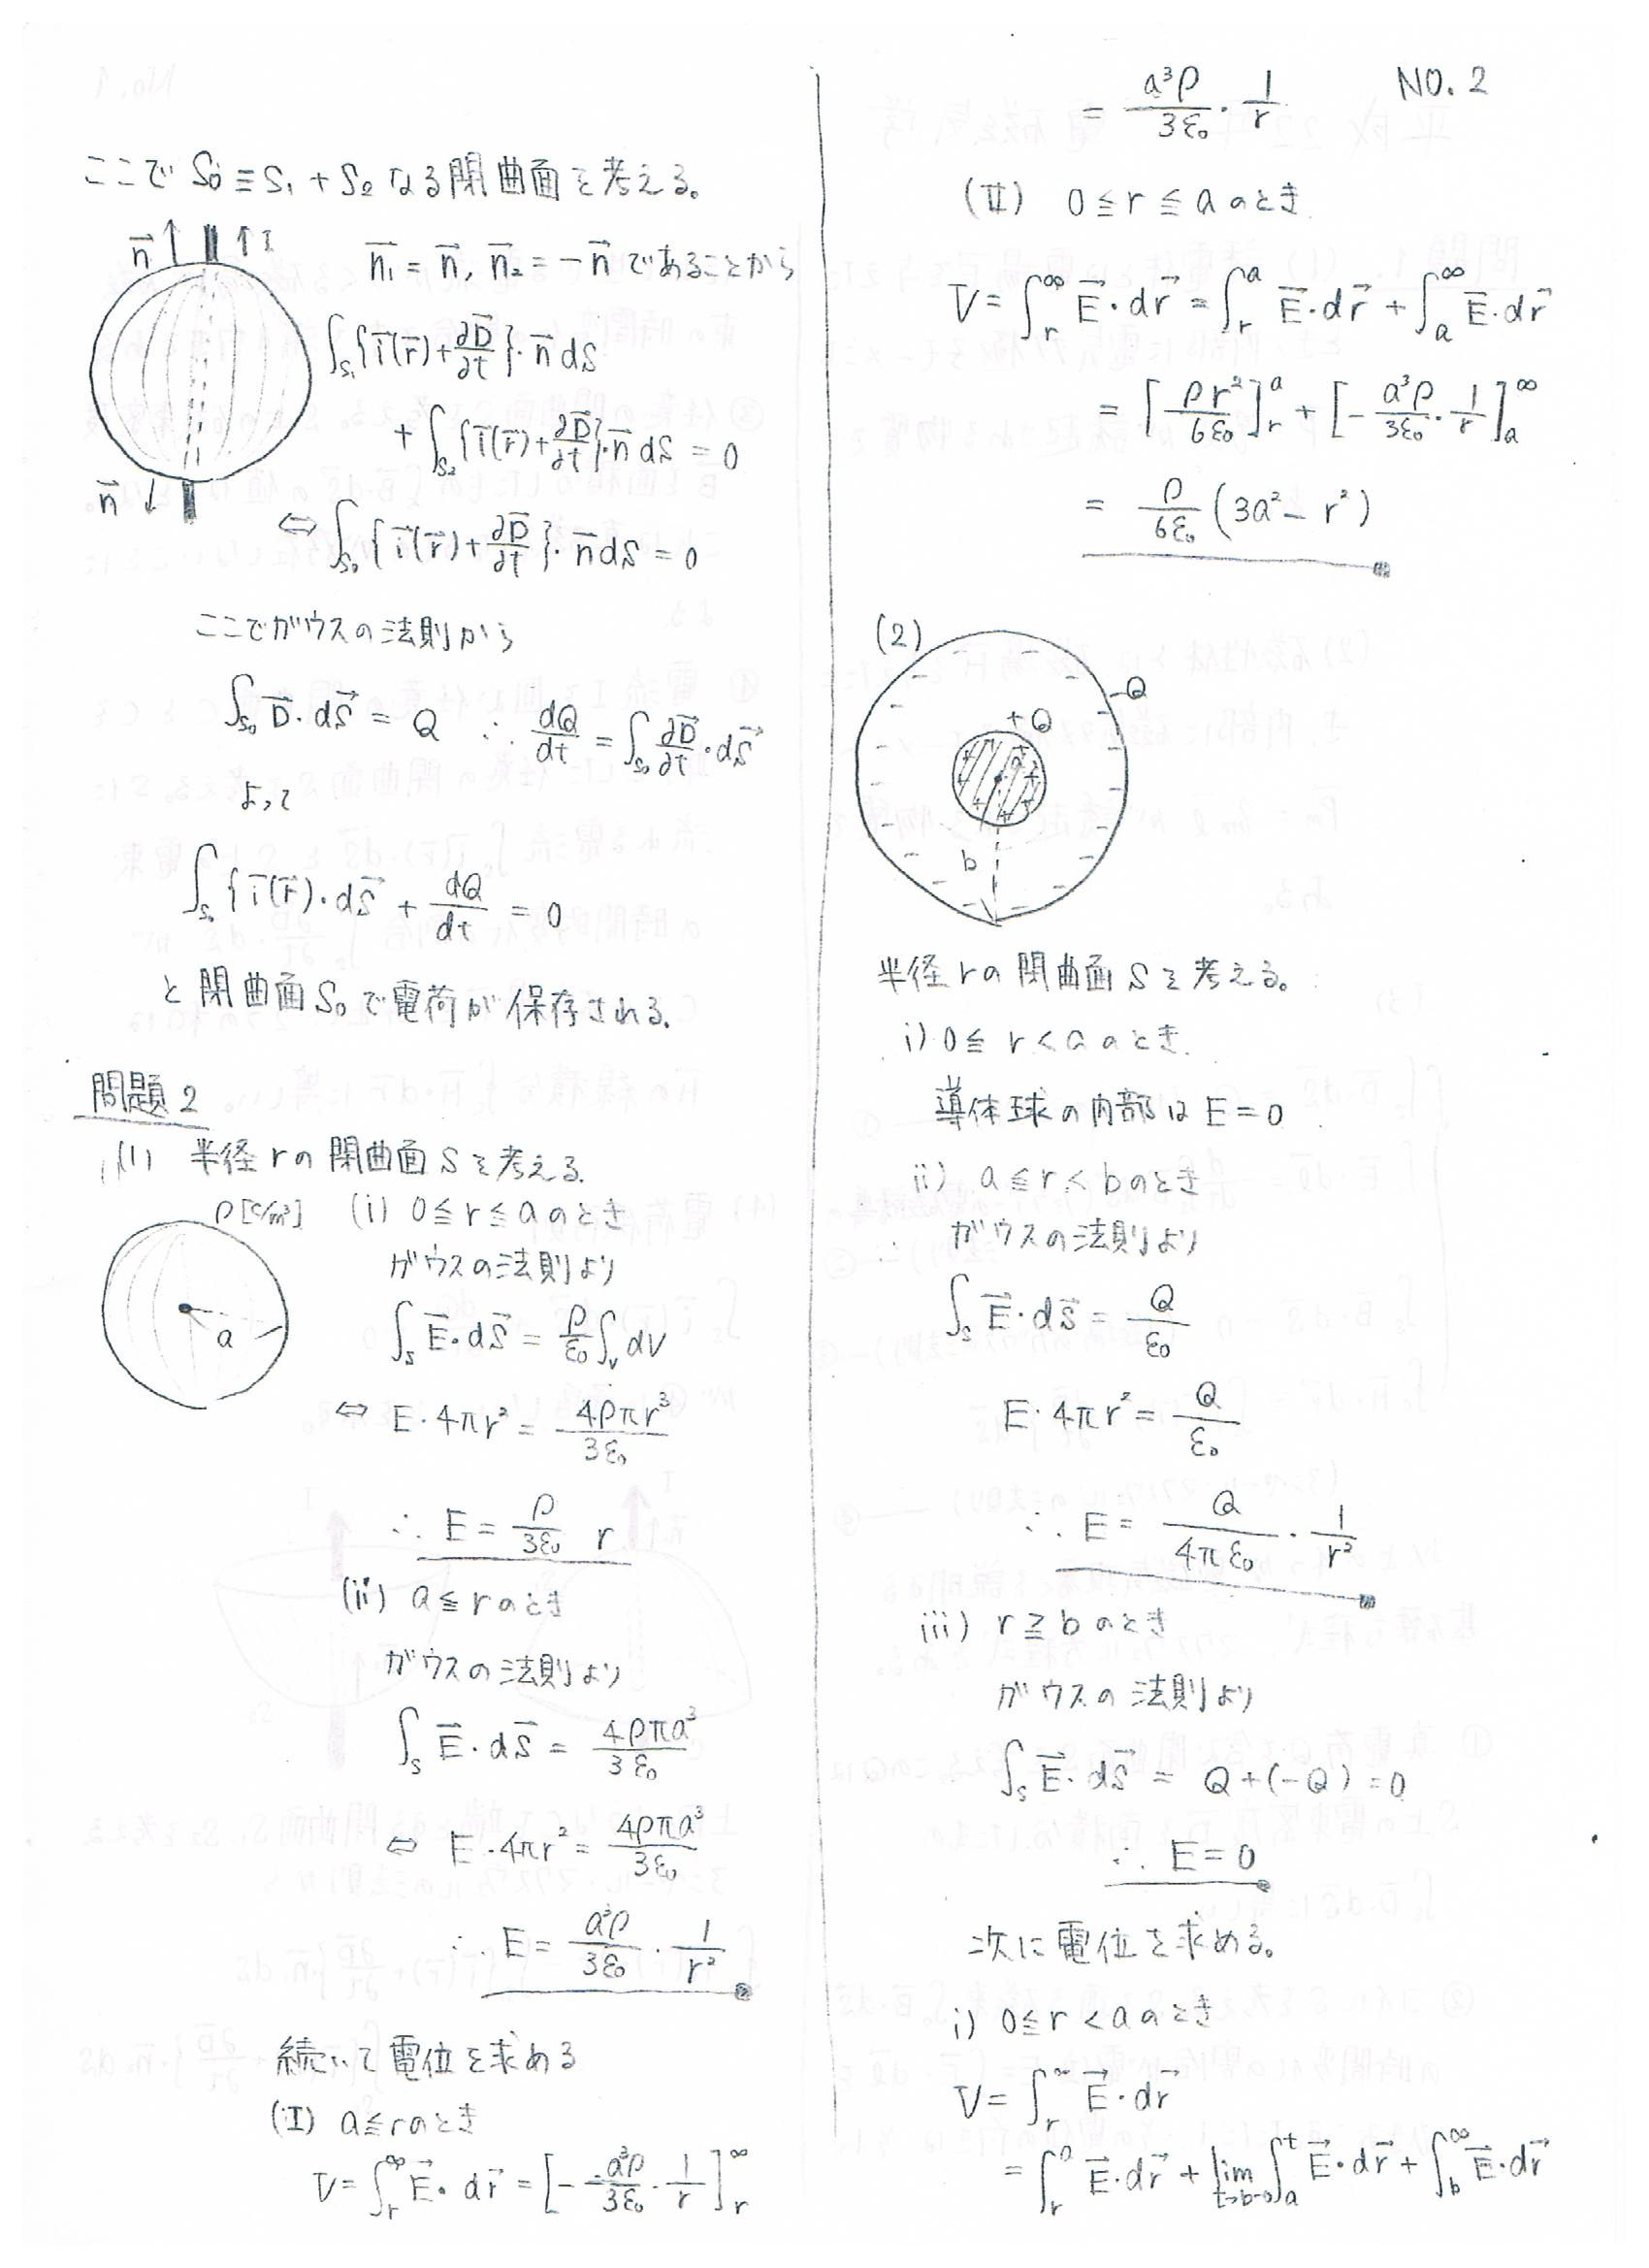 ここで S₀ ≡ S₁ + S₂ なる閉曲面を考える。
n⃗ ↑ ↑ I
n⃗₁ = n⃗, n⃗₂ = −n⃗ であることから
∫_S₁ {i⃗(r⃗) + ∂D⃗/∂t}・n⃗ dS
+ ∫_S₂ {i⃗(r⃗) + ∂D⃗/∂t}・n⃗ dS = 0
n⃗ ↓
⇔ ∫_S₀ {i⃗(r⃗) + ∂D⃗/∂t}・n⃗ dS = 0
ここでガウスの法則から
∫_S₀ D⃗・dS⃗ = Q ∴ dQ/dt = ∫_S₀ ∂D⃗/∂t・dS⃗
よって
∫_S₀ {i⃗(r⃗)・dS⃗ + dQ/dt = 0
と閉曲面 S₀ で電荷が保存される。
問題2
(1) 半径 r の閉曲面 S を考える。
ρ[C/m³] (i) 0 ≦ r ≦ a のとき
ガウスの法則より
a
∫_S E⃗・dS⃗ = ρ/ε₀ ∫_V dV
⇔ E・4πr² = 4ρπr³/3ε₀
∴ E = ρ/3ε₀ r
(ii) a ≦ r のとき
ガウスの法則より
∫_S E⃗・dS⃗ = 4ρπa³/3ε₀
⇔ E・4πr² = 4ρπa³/3ε₀
∴ E = a³ρ/3ε₀・1/r²
続いて電位を求める
(I) a ≦ r のとき
V = ∫_r^∞ E⃗・dr⃗ = [− a³ρ/3ε₀・1/r]_r^∞
NO. 2
= a³ρ/3ε₀・1/r
(II) 0 ≦ r ≦ a のとき
V = ∫_r^∞ E⃗・dr⃗ = ∫_r^a E⃗・dr⃗ + ∫_a^∞ E⃗・dr⃗
= [ρr²/6ε₀]_r^a + [− a³ρ/3ε₀・1/r]_a^∞
= ρ/6ε₀ (3a² − r²)
(2)
−Q
+Q
a
b
半径 r の閉曲面 S を考える。
i) 0 ≦ r < a のとき
導体球の内部は E = 0
ii) a ≦ r < b のとき
ガウスの法則より
∫_S E⃗・dS⃗ = Q/ε₀
E・4πr² = Q/ε₀
∴ E = Q/4πε₀・1/r²
iii) r ≧ b のとき
ガウスの法則より
∫_S E⃗・dS⃗ = Q + (−Q) = 0
∴ E = 0
次に電位を求める。
i) 0 ≦ r < a のとき
V = ∫_r^∞ E⃗・dr⃗
= ∫_r^a E⃗・dr⃗ + lim_{t→b−0} ∫_a^t E⃗・dr⃗ + ∫_b^∞ E⃗・dr⃗